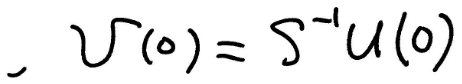 , v(0) = S⁻¹u(0)